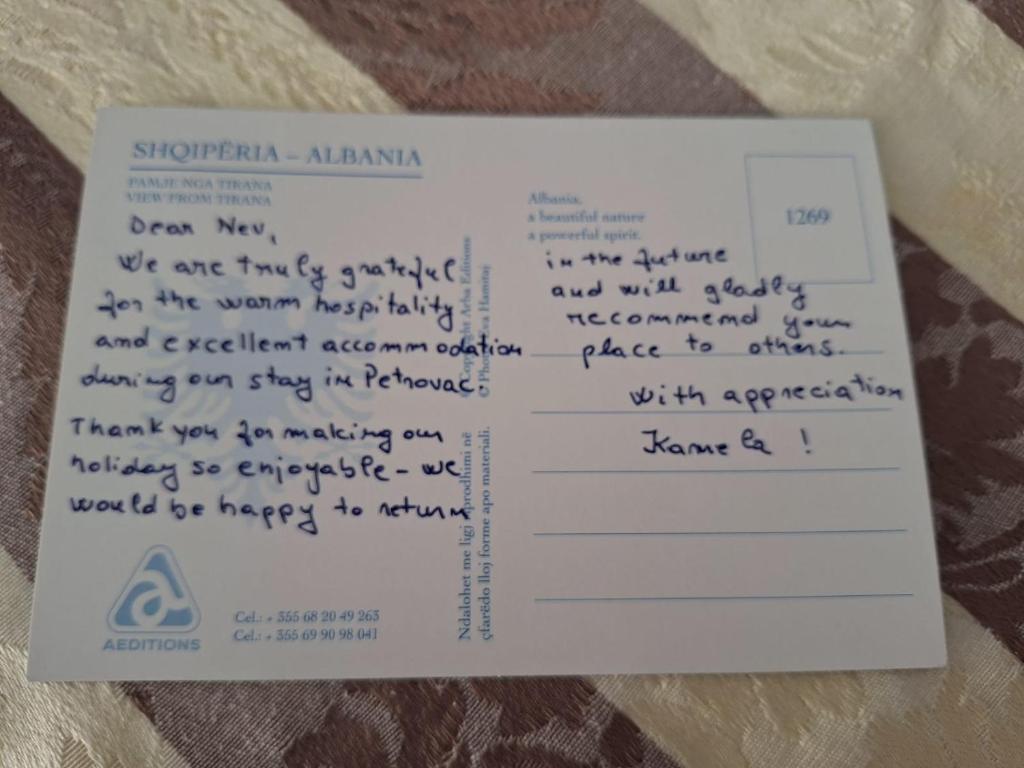 SHQIPËRIA – ALBANIA
PAMJE NGA TIRANA
VIEW FROM TIRANA
Dear Nev,
We are truly grateful
for the warm hospitality
and excellent accommodation
during our stay in Petrovac.
Thank you for making our
holiday so enjoyable – we
would be happy to return
AEDITIONS
Cel.: + 355 68 20 49 263
Cel.: + 355 69 90 98 041
Ndalohet me ligj riprodhimi në
çfarëdo lloj forme apo materiali.
Copyright Arba Editions
© Photo Eva Hamitaj
Albania,
a beautiful nature
a powerful spirit.
1269
in the future
and will gladly
recommend your
place to others.
with appreciation
Kamela !